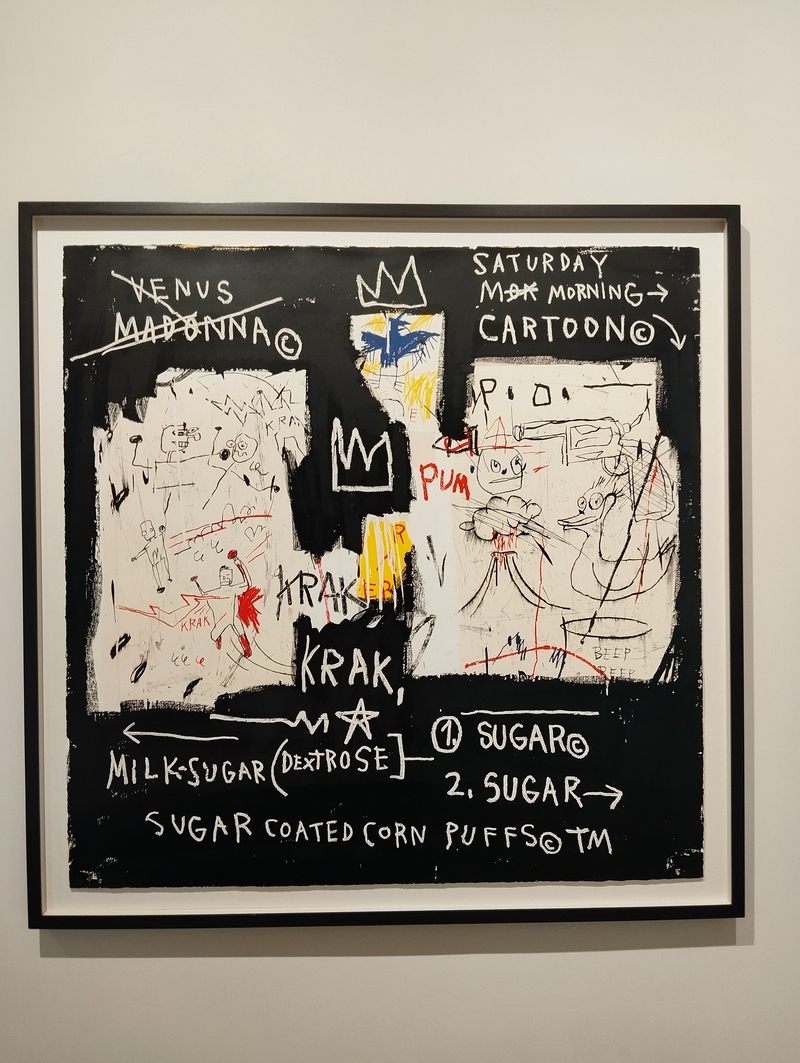 VENUS
MADONNA©
SATURDAY
MORNING→
CARTOON©
P.O.
KRAK
PUM
R
KRAK
ER
KRAK
BEEP
BEEP
KRAK,
MILK-SUGAR (DEXTROSE]
1. SUGAR©
2. SUGAR→
SUGAR COATED CORN PUFFS© TM